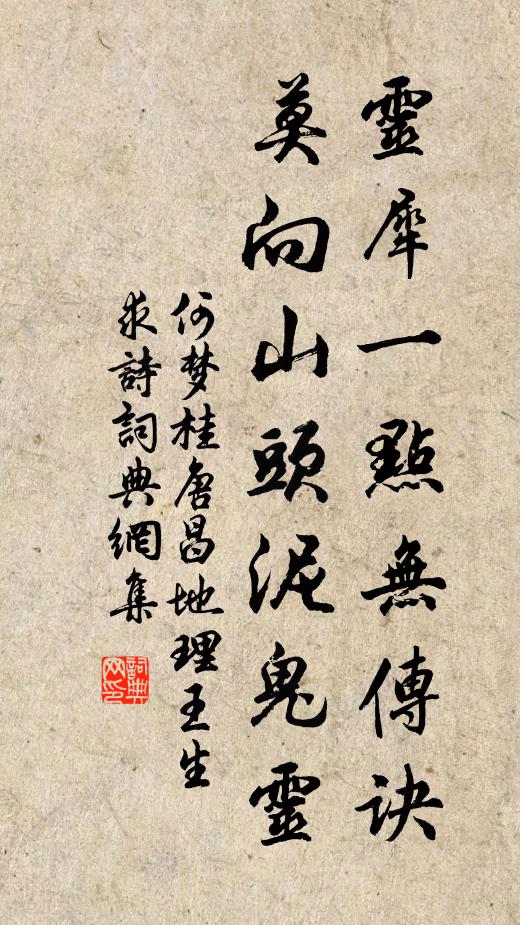 靈犀一點無傳訣
莫向山頭泥鬼靈
何梦桂唐昌地理王生
求詩詞典網集
詞典网印